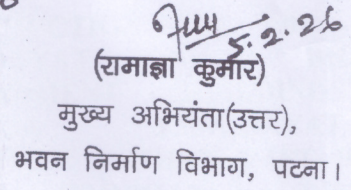 5.2.26
(रामाज्ञा कुमार)
मुख्य अभियंता(उत्तर),
भवन निर्माण विभाग, पटना।